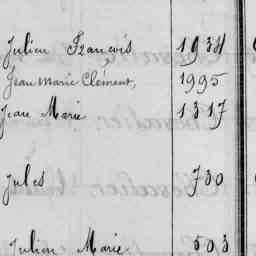 Julien François 1934
Jean Marie Clément, 1995
Jean Marie 1317
Jules 730
Julien Marie 503